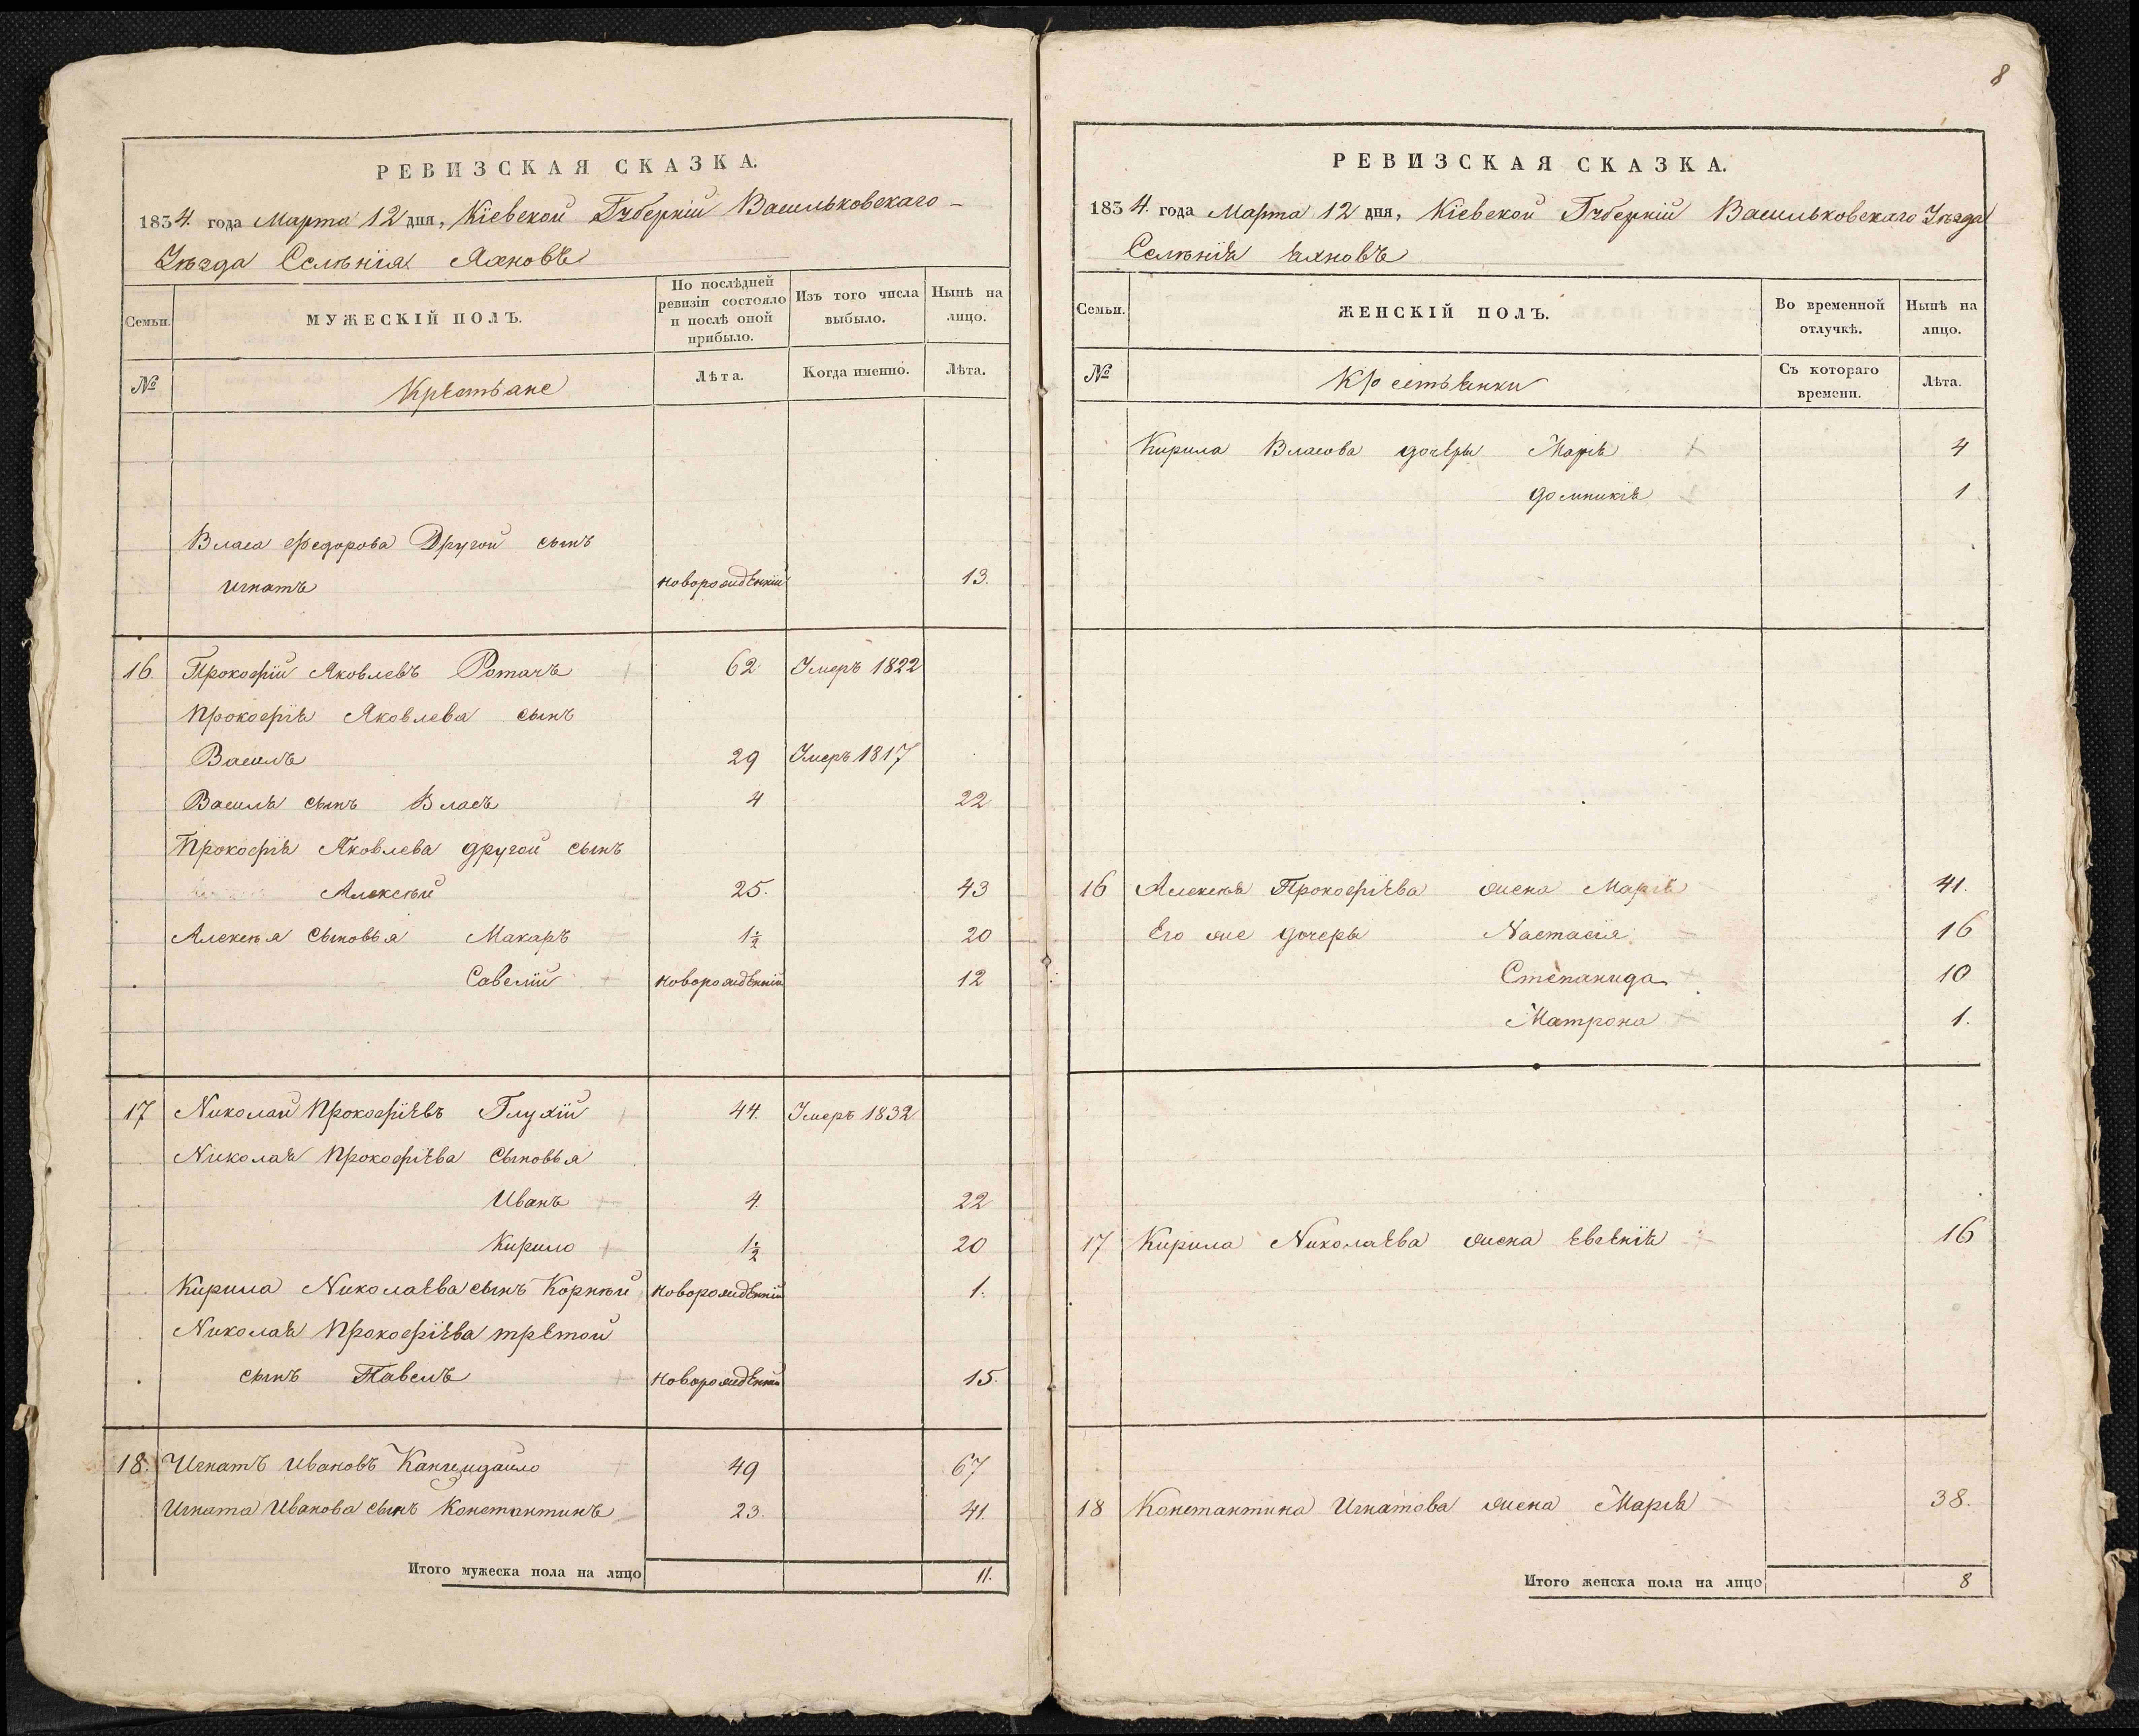 РЕВИЗСКАЯ СКАЗКА.
1834. года Марта 12 дня, Кіевской Губерніи Васильковскаго -
Уѣзда Селѣнія Яхновъ
Семьи.
МУЖЕСКІЙ ПОЛЪ.
По послѣдней ревизіи состояло и послѣ оной прибыло.
Изъ того числа выбыло.
Нынѣ на лицо.
№ Крестьяне Лѣта. Когда именно. Лѣта.
Власа Федорова Другой сынъ
Игнатъ новорожденній 13.
16. Прокофій Яковлевъ Ротачъ 62 Умеръ 1822
Прокофія Яковлева сынъ
Василъ 29 Умеръ 1817
Василя сынъ Власъ 4 22
Прокофія Яковлева другой сынъ
Алексѣй 25. 43
Алексѣя Сыновья Макаръ 1½ 20
Савелій новорожденній 12
17 Николай Прокофіевъ Глухій 44. Умеръ 1832
Николая Прокофіева Сыновья
Иванъ 4. 22
Кирило 1½ 20
Кирила Николаева сынъ Корнѣй новорожденній 1.
Николая Прокофіева третой
сынъ Павелъ новорожденній 15.
18. Игнатъ Ивановъ 49 67
Игната Иванова сынъ Константинъ 23. 41.
Итого мужеска пола на лицо 11.
8
РЕВИЗСКАЯ СКАЗКА.
1834. года Марта 12 дня, Кіевской Губерніи Васильковскаго Уѣзда
Селѣнія Яхновъ
Семьи.
ЖЕНСКІЙ ПОЛЪ.
Во временной отлучкѣ.
Нынѣ на лицо.
№ Крестьянки Съ котораго времени. Лѣта.
Кирила Власова дочеры Марія 4
Домникія 1
16 Алексѣя Прокофіева жена Марія 41.
Его же дочеры Настасія 16
Степанида 10
Матрона 1.
17 Кирила Николаева жена Евгенія 16
18 Константина Игнатова жена Марія 38.
Итого женска пола на лицо 8